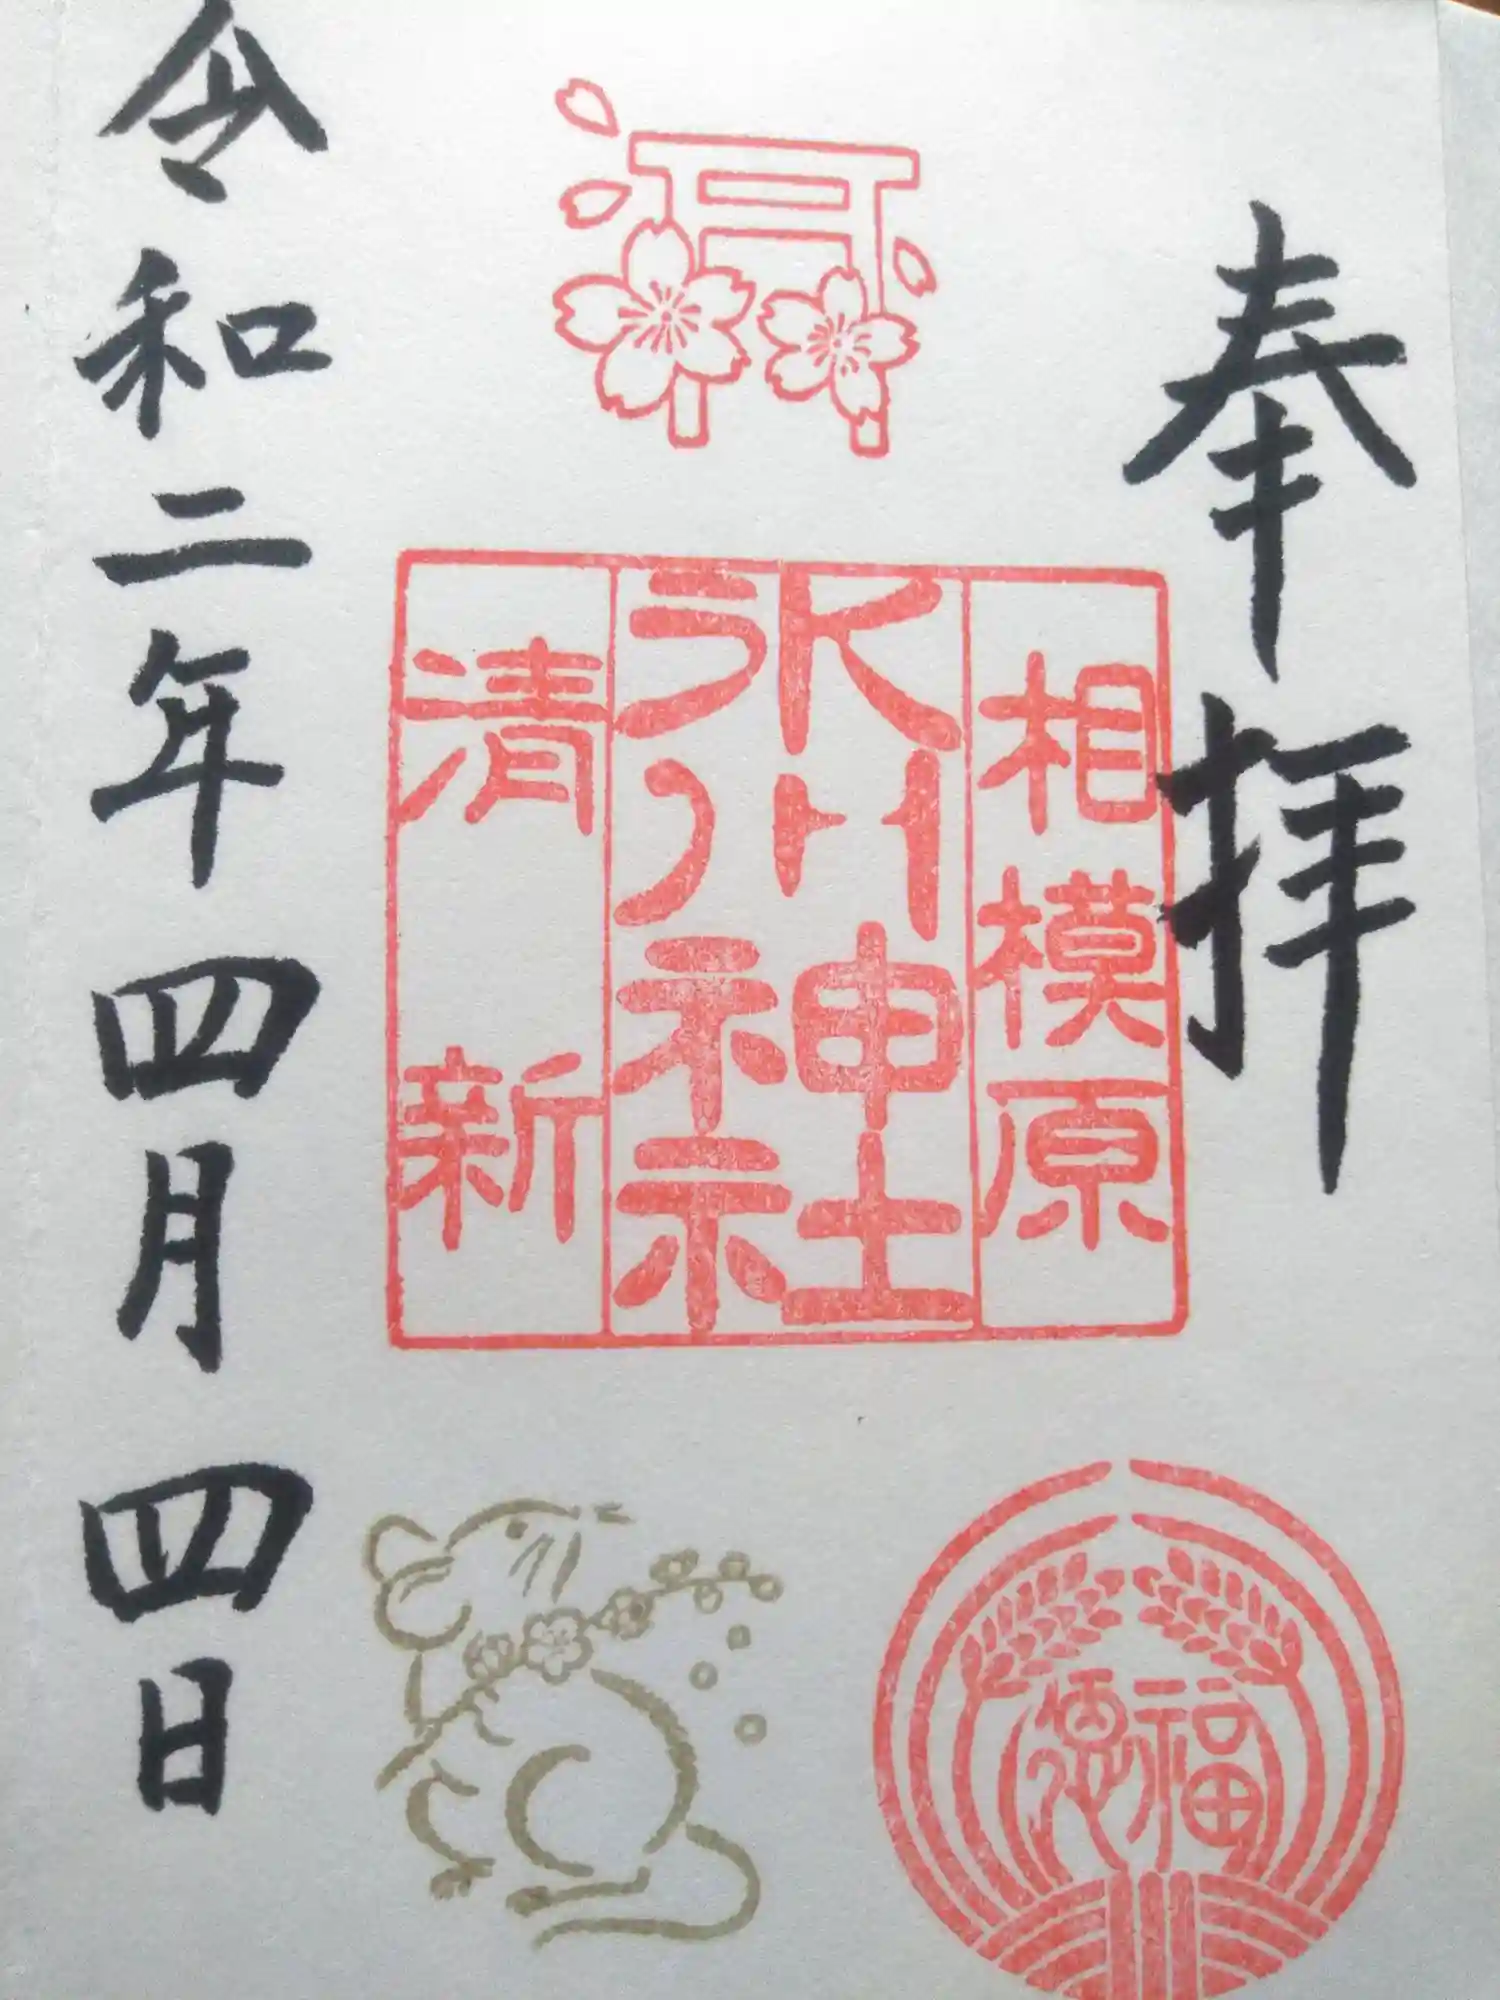 奉拝
相模原
氷川神社
清新
福
令和二年四月四日